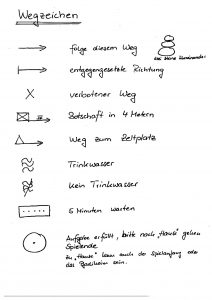 Wegzeichen
folge diesem Weg
entgegengesetzte Richtung
verbotener Weg
Botschaft in 4 Metern
Weg zum Zeltplatz
Trinkwasser
kein Trinkwasser
5 Minuten warten
Aufgabe erfüllt, bitte nach "Hause" gehen
Spielende
zu "Hause" kann auch der Spielanfang oder
das Pfadiheim sein.